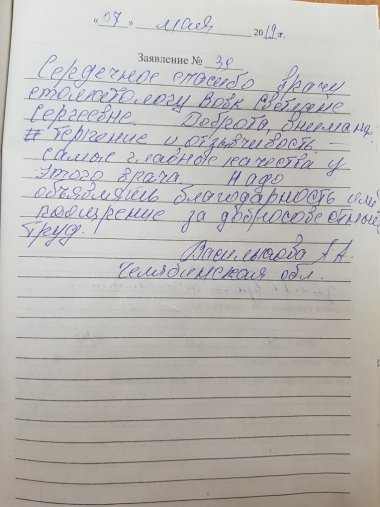 «07» мая 2019 г.
Заявление № 38
Сердечное спасибо врачу
стоматологу Вовк Светлане
Сергеевне. Доброта вниман.
Терпение и отзывчивость –
самые главные качества у
этого врача. Надо
объявлять благодарность или
поощрение за добросовестный
труд.
Василькова А А.
Челябинская обл.